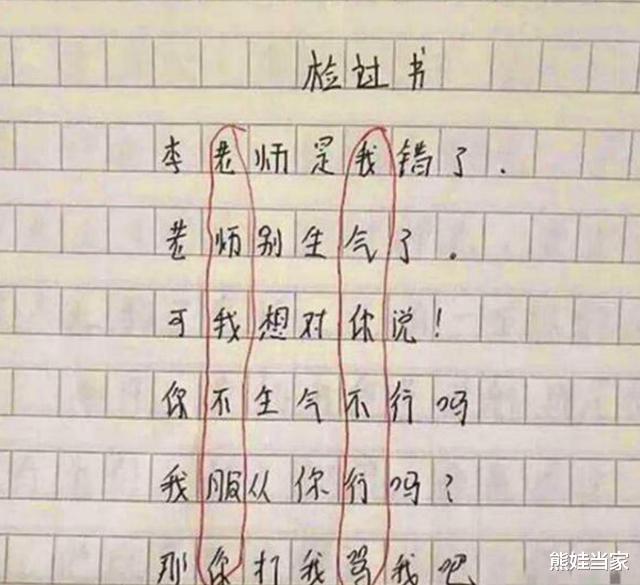 检过书
李老师是我错了.
老师别生气了.
可我想对你说!
你不生气不行吗
我服从你行吗?
那你打我骂我吧
熊娃当家